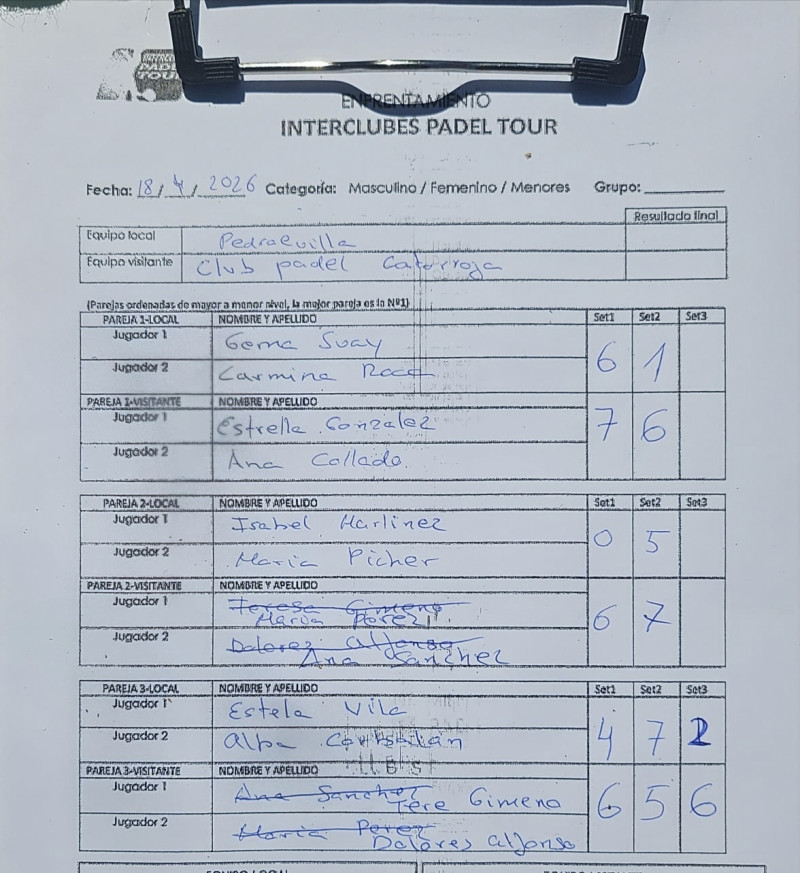 PADEL TOUR
ENFRENTAMIENTO
INTERCLUBES PADEL TOUR
Fecha: 18/4/2026 Categoría: Masculino / Femenino / Menores Grupo:
Resultado final
Equipo local Pedralvilla
Equipo visitante Club padel Catarroja
(Parejas ordenadas de mayor a menor nivel, la mejor pareja es la Nº1)
PAREJA 1-LOCAL NOMBRE Y APELLIDO Set1 Set2 Set3
Jugador 1 Gema Suay
6 1
Jugador 2 Carmina Roca
PAREJA 1-VISITANTE NOMBRE Y APELLIDO
Jugador 1 Estrella Gonzalez
7 6
Jugador 2 Ana Collado
PAREJA 2-LOCAL NOMBRE Y APELLIDO Set1 Set2 Set3
Jugador 1 Isabel Martinez
0 5
Jugador 2 Maria Picher
PAREJA 2-VISITANTE NOMBRE Y APELLIDO
Jugador 1 Teresa Gimeno
Maria Perez
6 7
Jugador 2 Dolores Alfonso
Ana Sanchez
PAREJA 3-LOCAL NOMBRE Y APELLIDO Set1 Set2 Set3
Jugador 1 Estela Vila
4 7 2
Jugador 2 Alba
PAREJA 3-VISITANTE NOMBRE Y APELLIDO
Jugador 1 Ana Sanchez
Tere Gimeno
6 5 6
Jugador 2 Maria Perez
Dolores Alfonso
EQUIPO LOCAL EQUIPO VISITANTE